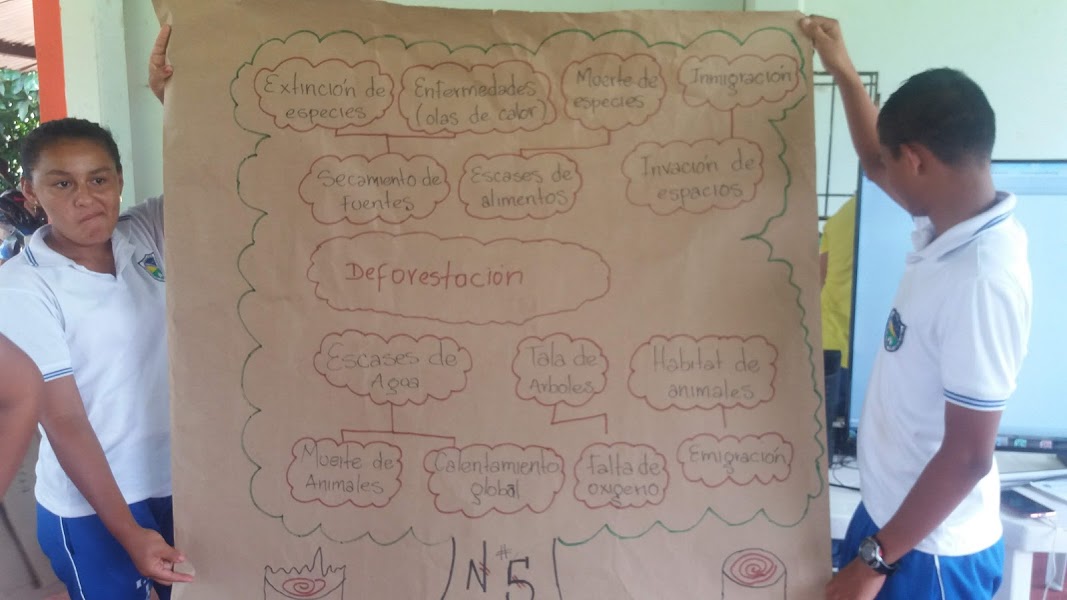 Extinción de
especies
Enfermedades
(olas de calor)
Muerte de
especies
Inmigración
Secamiento de
fuentes
Escases de
alimentos
Invación de
espacios
Deforestación
Escases de
Agua
Tala de
Arboles
Habitat de
animales
Muerte de
Animales
Calentamiento
global
falta de
oxigeno
Emigración
N# 5